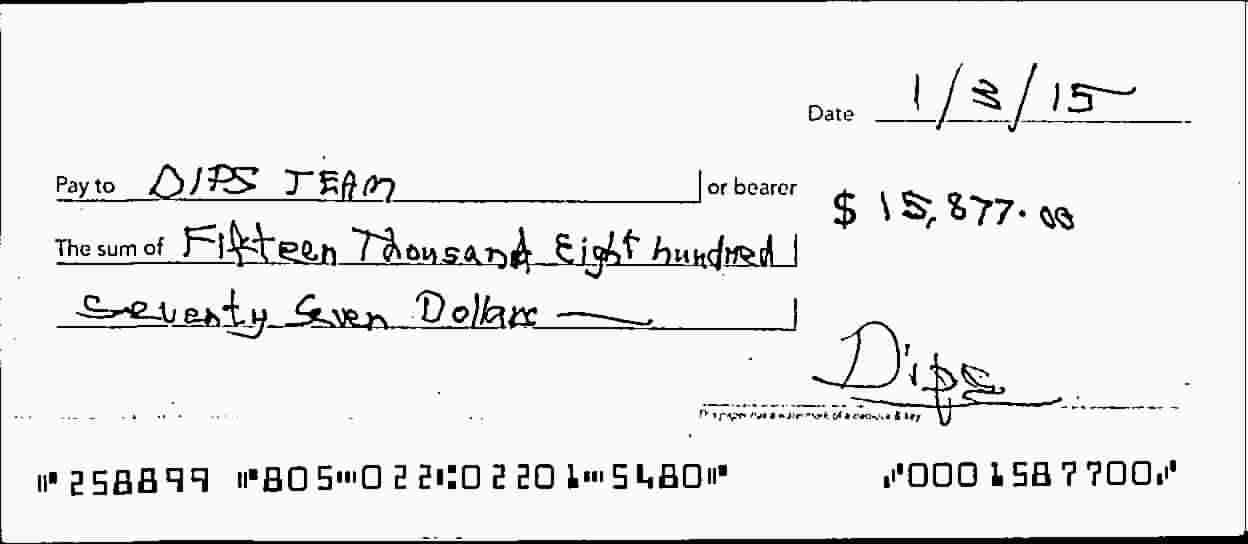 Date 1/3/15
Pay to DIPS TEAM or bearer
$ 15,877.00
The sum of Fifteen Thousand Eight hundred
Seventy Seven Dollars
Dips
This paper has a watermark of a & key
⑈258899 ⑈805⑉022⑆02201⑉5480⑈ ⑇0001587700⑇